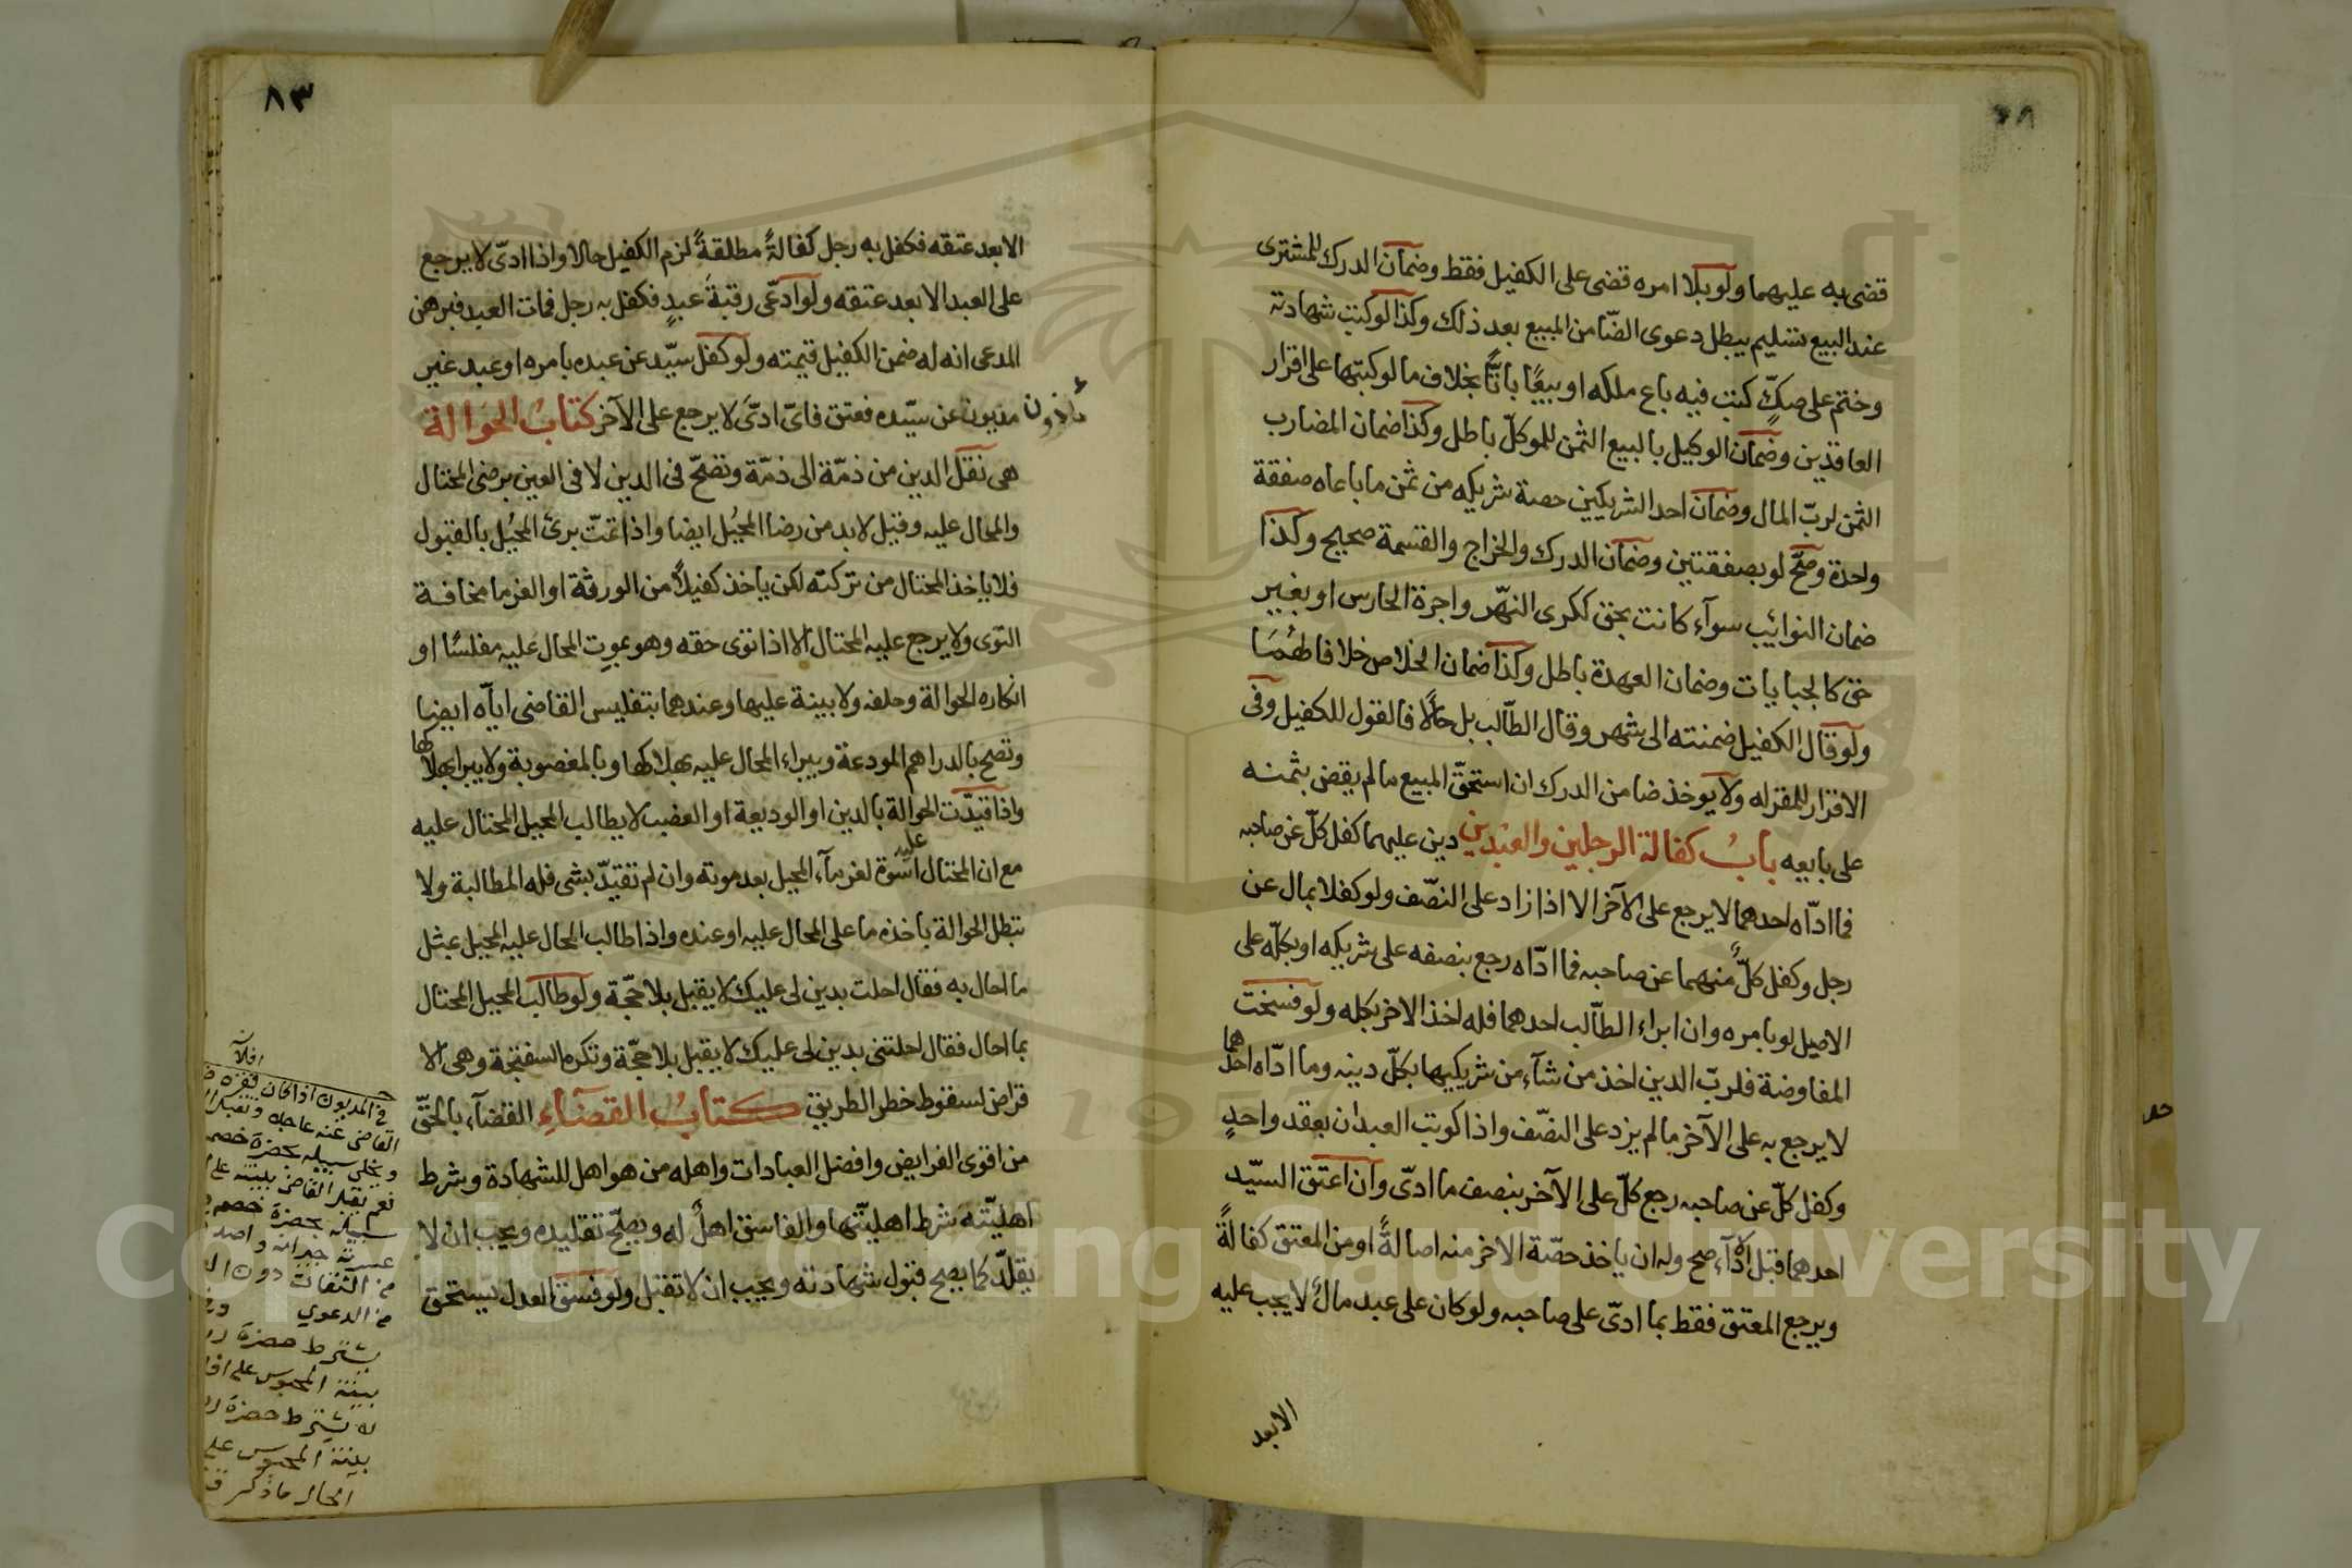 قضى به عليهما ولو بلا امره قضى على الكفيل فقط وضمان الدرك للمشترى
عند البيع تسليم يبطل دعوى الضّامن المبيع بعد ذلك وكذا لو كتب شهادته
وختم على صكّ كتب فيه باع ملكه او بيعًا باتًّا بخلاف ما لو كتبها على اقرار
العاقدين وضمان الوكيل بالبيع الثمن للموكلّ باطل وكذا ضمان المضارب
الثمن لربّ المال وضمان احد الشريكين حصة شريكه من ثمن ما باعاه صفقة
واحدة وصحّ لو بصفقتين وضمان الدرك والخراج والقسمة صحيح وكذا
ضمان النوائيب سوآء كانت بحق ككرى النهّر واجرة الحارس او بغير
حق كالجبايات وضمان العهدة باطل وكذا ضمان الخلاص خلافا لهُمَا
ولو قال الكفيل ضمنته الى شهر وقال الطّالب بل حالّا فالقول للكفيل وفى
الاقرار للمقر له ولا يوخذ ضامن الدرك ان استحقّ المبيع ما لم يقض بثمنه
على بايعه بابُ كفالة الرجلين والعبدين دين عليهما كفل كلّ عن صاحبه
فما ادّاه احدهما لا يرجع على الآخر الا اذا زاد على النصّف ولو كفلا بمال عن
رجل وكفل كلّ منهما عن صاحبه فما ادّاه رجع بنصفه على شريكه او بكلّه على
الاصيل لو بامره وان ابراء الطّالب احدهما فله اخذ الاخر بكله ولو فسخت
المفاوضة فلربّ الدين اخذ من شآء من شريكيها بكلّ دينه وما ادّاه احدهما
لا يرجع به على الآخر ما لم يزد على النصّف واذا كوتب العبدان بعقد واحدٍ
وكفل كلّ عن صاحبه رجع كلّ على الآخر بنصف ما ادىّ وان اعتق السيّد
احدهما قبل الادآء صح وله ان ياخذ حصّة الاخر منه اصالةً او من المعتق كفالةً
ويرجع المعتق فقط بما ادىّ على صاحبه ولو كان على عبد مالٌ لا يجب عليه
الا بعد
٨٣
الا بعد عتقه فكفل به رجل كفالةً مطلقةً لزم الكفيل حالا واذا ادىّ لا يرجع
على العبد الا بعد عتقه ولو ادعّى رقبة عبدٍ فكفل به رجل فمات العبد فبرهن
المدعى انه له ضمن الكفيل قيمته ولو كفل سيّد عن عبده بامره او عبد غير
مديون عن سيّده فعتق فاىّ ادىّ لا يرجع على الآخر كتابُ الحَوالة
هى نقل الدين من ذمّة الى ذمّة وتصحّ فى الدين لا فى العين برضى المحتال
والمحال عليه وقيل لا بد من رضا المحُيل ايضا واذا تمتّ برئ المحُيل بالقبول
فلا ياخذ المحتال من تركته لكن ياخذ كفيلاً من الورثة او الغرما مخافة
التوى ولا يرجع عليه المحتال الا اذا توى حقه وهو بموت المحال عليه مفلسًا او
انكاره الحوالة وحلفه ولا بينة عليها وعندهما بتفليس القاضى ايآّه ايضا
وتصح بالدراهم المودعة ويبراء المحال عليه بهلاكها وبالمغصوبة ولا يبرا بهلاكها
واذا قيّدت الحوالة بالدين او الوديعة او الغصب لا يطالب المحيل المحتال عليه
مع ان المحتال عليه اسُوة لغرمآء المحيل بعد موته وان لم تقيدّ بشى فله المطالبة ولا
تبطل الحوالة باخذه ما على المحال عليه او عنده واذا طالب المحال عليه المحيل بمثل
ما احال به فقال احلت بدين لى عليك لا يقبل بلا حجّة ولو طالب المحيل المحتال
بما احال فقال احلتنى بدين لى عليك لا يقبل بلا حجّة وتكره السفتجة وهى الا
قراض لسقوط خطر الطريق كتابُ القَضَآءِ القضآء بالحقّ
من اقوى الفرايض وافضل العبادات واهله من هو اهل للشهادة وشرط
اهليّته شرط اهليتّها والفاسق اهلٌ له ويصحّ تقليده ويجب ان لا
يقلدّ كما يصح قبول شهادته ويجب ان لا تقبل ولو فسق العدل يستحق
مأذون
فى المديون اذا كان
ويخلى سبيله بحضرة خصمه
نعم يقبل القاضى بينته على
من الثقات دون
من الدعوى
يشترط حضرة
بينة المحبوس على
لا يشترط حضرة
بينة المحبوس على
Copyright © King Saud University
195